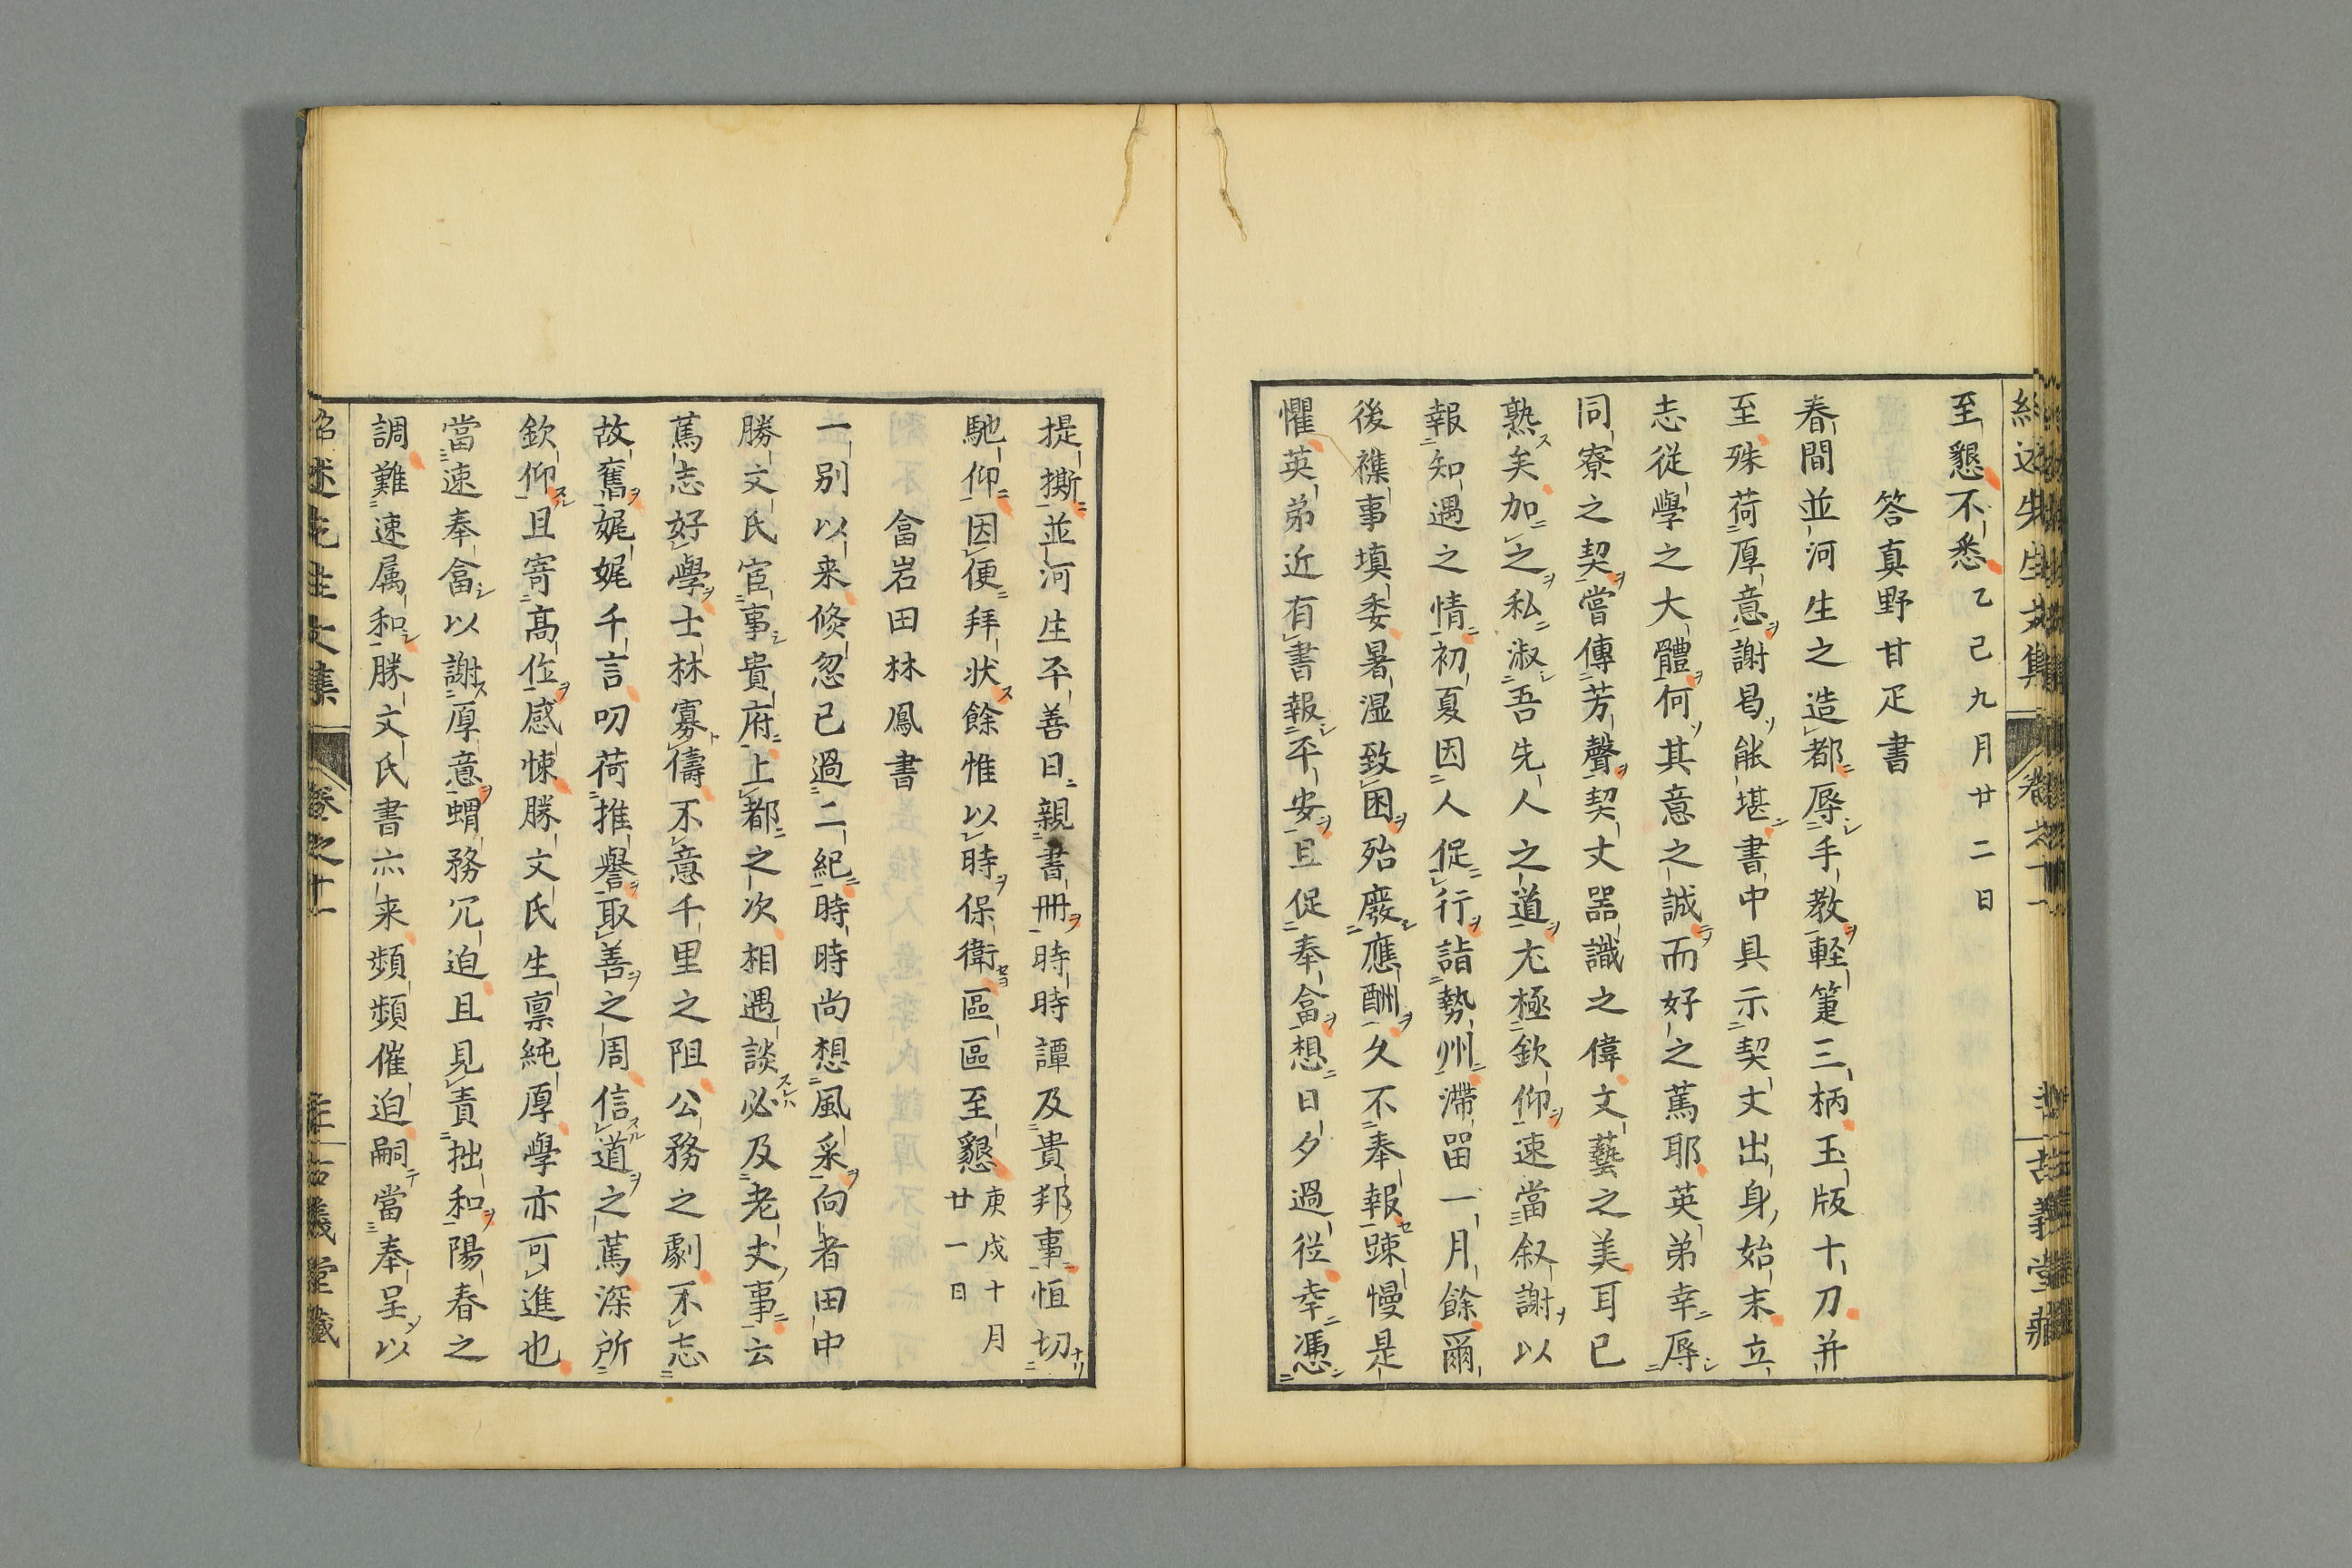 至懇不悉乙己九月廿二日
答真野甘疋書
春間並河生之造都辱手教軽箑三柄玉版十刀并
至殊荷厚意謝曷能堪書中具示契丈出身始末立
志従學之大體何其意之誠而好之篤耶英弟幸辱
同寮之契嘗傳芳聲契丈噐識之偉文藝之美耳已
熟矣加之私淑吾先人之道尤極欽仰速當叙謝以
報知遇之情初夏因人促行詣勢州滯留一月餘爾
後襍事填委暑湿致困殆廢應酬久不奉報踈慢是
懼英弟近有書報平安且促奉畣想日夕過従幸憑
提撕並河生平善日親書冊時時譚及貴邦事恒切
馳仰因便拜状餘惟以時保衛區區至懇庚戌十月廿一日
畣岩田林鳳書
一別以来倏忽已過二紀時時尚想風采向者田中
勝文氏宦事貴府上都之次相遇談必及老丈事云
篤志好學士林寡儔不意千里之阻公務之劇不志
故舊娓娓千言叨荷推譽取善之周信道之篤深所
欽仰且寄高作感悚勝文氏生禀純厚學亦可進也
當速奉畣以謝厚意蝟務冗迫且見責拙和陽春之
調難速属和勝文氏書六来頻頻催迫嗣當奉呈以
紹述先生文集
卷之十一
古義堂藏